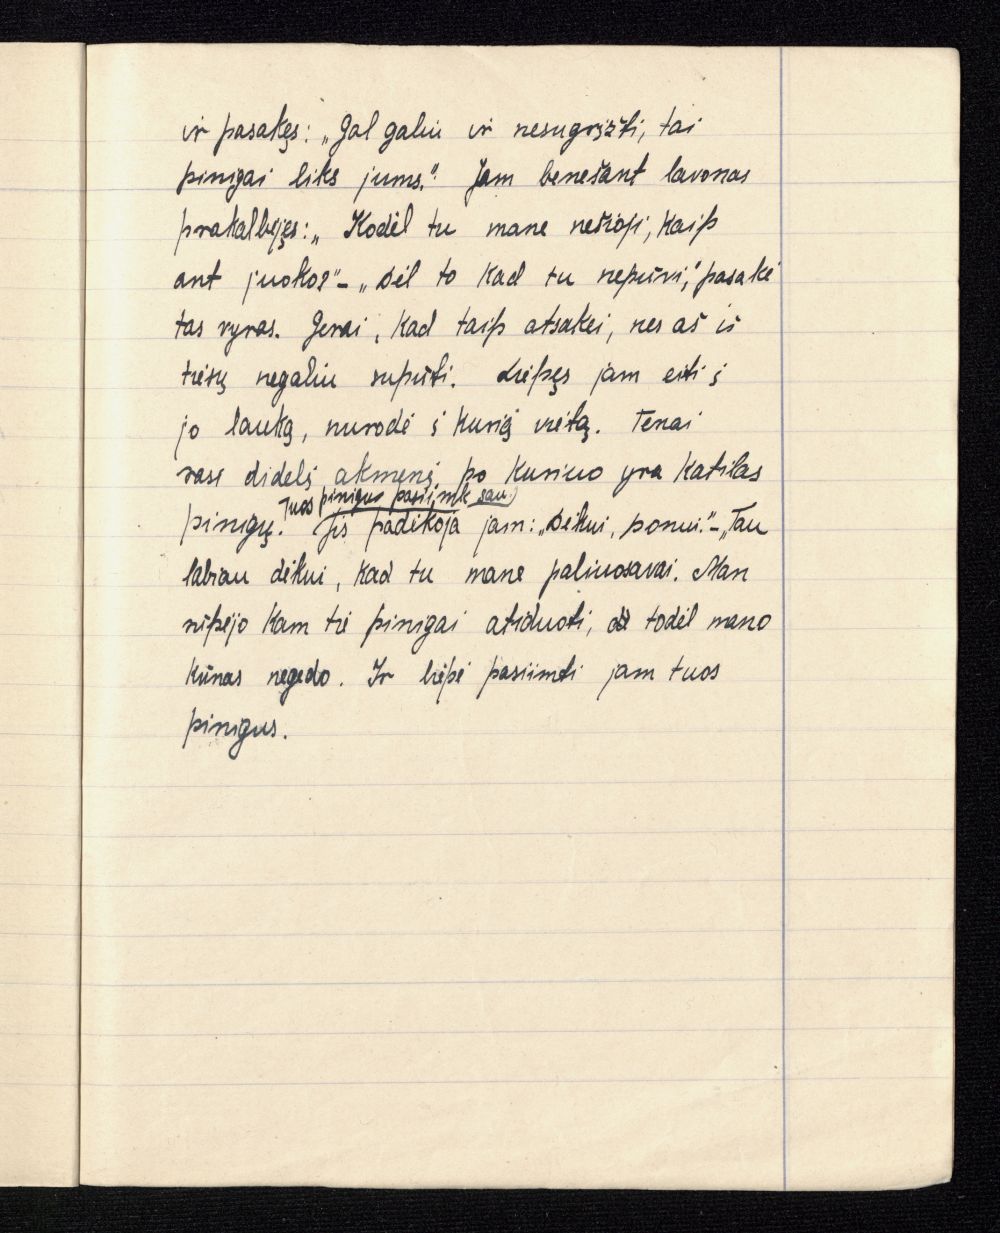 ir pasakęs: „Gal galiu ir nesugrįžti, tai
pinigai liks jums.“ Jam benešant lavonas
prakalbėjęs: „Kodėl tu mane nešioji, kaip
ant juoko?“ – „Dėl to kad tu nepūvi,“ pasakė
tas vyras. Gerai, kad taip atsakei, nes aš iš
tiesų negaliu supūti. Liepęs jam eiti į
jo lauką, nurodė į kurią vietą. Tenai
rasi didelį akmenį, po kuriuo yra katilas
Tuos pinigus pasiimk sau
pinigų. Jis padėkoja jam: „Dėkui, ponui.“ – „Tau
labiau dėkui, kad tu mane paliuosavai. Man
rūpėjo kam tie pinigai atiduoti, todėl mano
kūnas negedo. Ir liepė pasiimti jam tuos
pinigus.